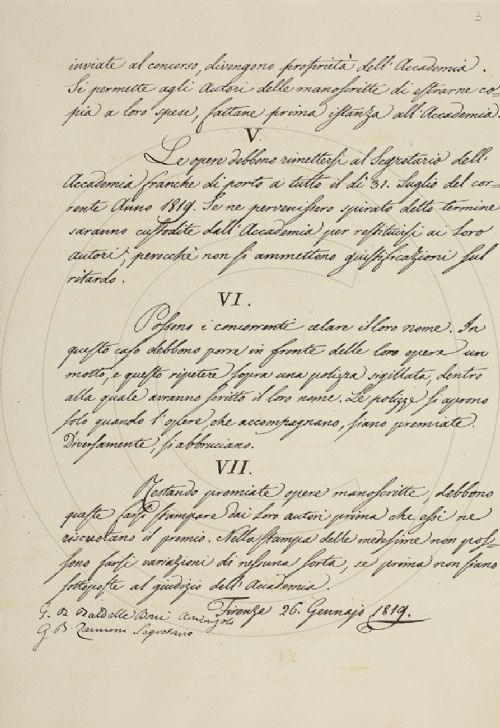 3
inviate al concorso, divengono proprietà dell'Accademia.
Si permette agli Autori delle manoscritte di estrarne co=
pia a loro spese, fattane prima istanza all'Accademia.
V.
Le opere debbono rimettersi al Segretario dell'
Accademia franche di porto a tutto il dì 31. Luglio del cor=
rente Anno 1819. Se ne pervenissero spirato detto termine
saranno custodite dall'Accademia per restituirsi ai loro
autori; perocchè non si ammettono giustificazioni sul
ritardo.
VI.
Possono i concorrenti celare il loro nome. In
questo caso debbono porre in fronte delle loro opere un
motto, e questo ripetere sopra una polizza sigillata, dentro
alla quale avranno scritto il loro nome. Le polizze si aprono
solo quando l'opere, che accompagnano, siano premiate.
Diversamente, si abbruciano.
VII.
Restando premiate opere manoscritte, debbono
queste farsi stampare dai loro autori prima che essi ne
riscuotano il premio. Nella stampa delle medesime non pos=
sono farsi variazioni di nessuna sorta, se prima non siano
sottoposte al giudizio dell'Accademia.
Firenze 26. Gennajo 1819.
G. B. Baldelli Boni Arciconsolo
G. B. Zannoni Segretario